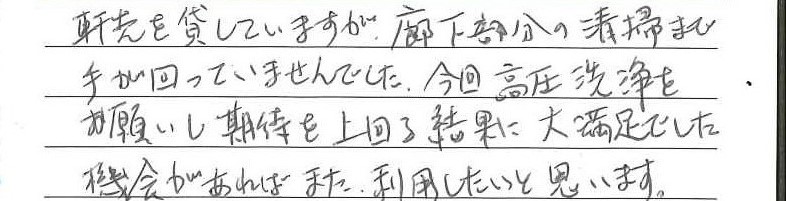 軒先を貸していますが、廊下部分の清掃まで
手が回っていませんでした、今回高圧洗浄を
お願いし期待を上回る結果に大満足でした
機会があればまた、利用したいと思います。